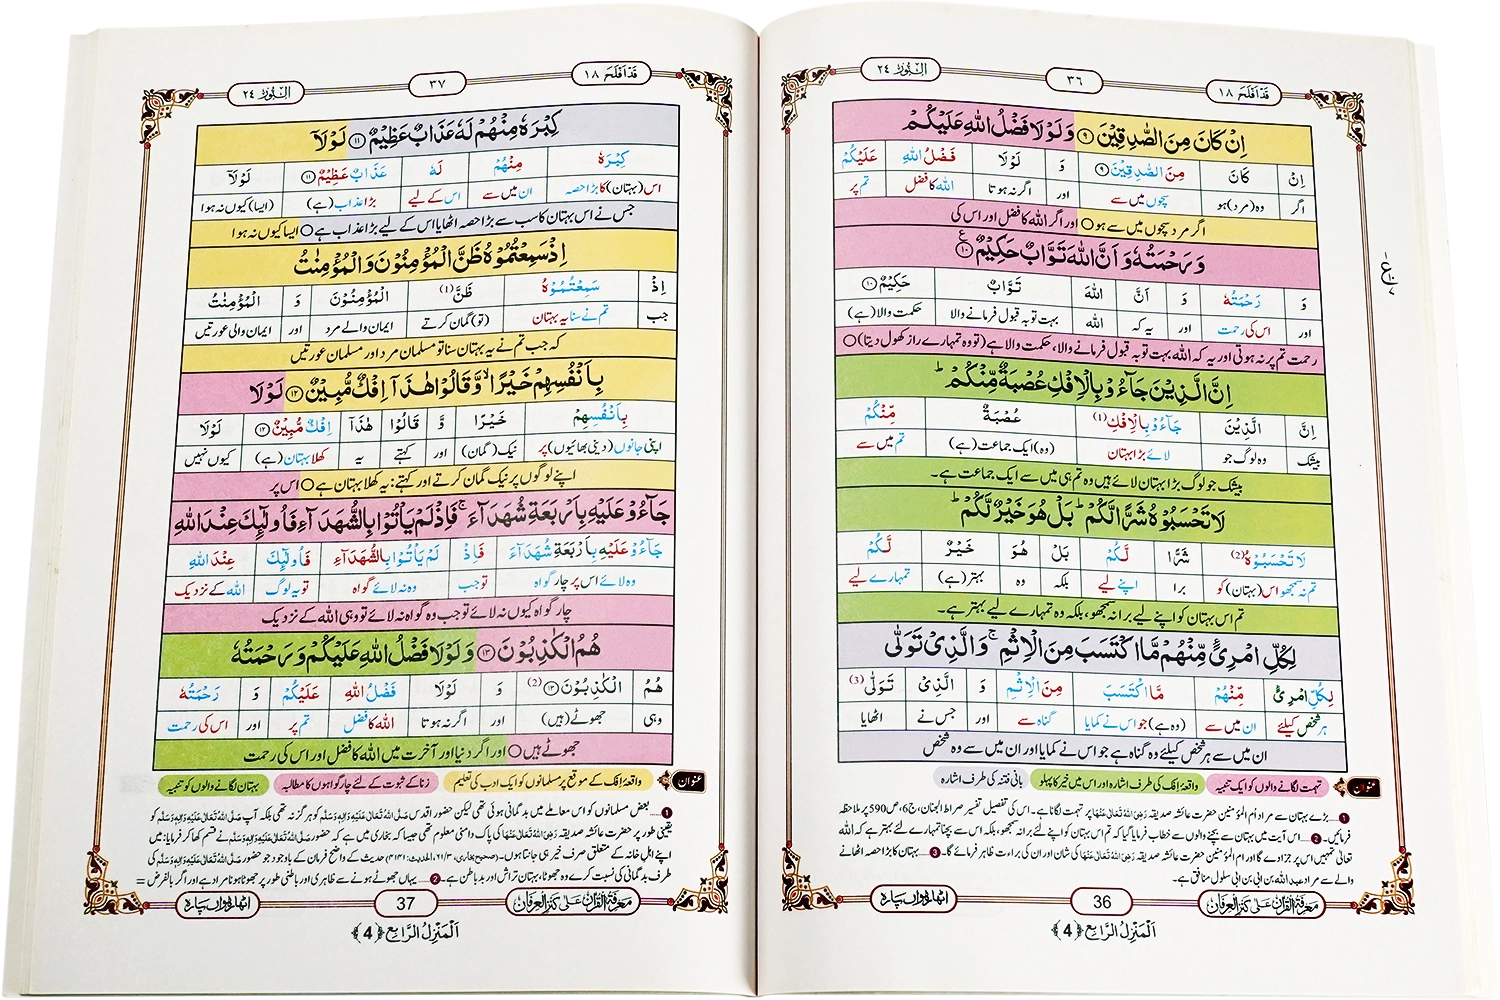 قَدْ اَفْلَحَ ١٨
٣٦
اَلنُّوْر ٢٤
اِنْ كَانَ مِنَ الصّٰدِقِیْنَ ﴿۹﴾ وَ لَوْ لَا فَضْلُ اللّٰهِ عَلَیْكُمْ
اِنْ كَانَ مِنَ الصّٰدِقِیْنَ ﴿۹﴾ وَ لَوْلَا فَضْلُ اللّٰهِ عَلَیْكُمْ
اگر وہ (مرد) ہو سچوں میں سے اور اگر نہ ہوتا اللہ کا فضل تم پر
اگر مرد سچوں میں سے ہو ○ اور اگر اللہ کا فضل اور اس کی
وَ رَحْمَتُهٗ وَ اَنَّ اللّٰهَ تَوَّابٌ حَكِیْمٌ ﴿۱۰﴾
وَ رَحْمَتُهٗ وَ اَنَّ اللّٰهَ تَوَّابٌ حَكِیْمٌ ﴿۱۰﴾
اور اس کی رحمت اور یہ کہ اللہ بہت توبہ قبول فرمانے والا حکمت والا (ہے)
رحمت تم پر نہ ہوتی اور یہ کہ اللہ بہت توبہ قبول فرمانے والا، حکمت والا ہے (تو وہ تمہارے راز کھول دیتا) ○
اِنَّ الَّذِیْنَ جَآءُوْ بِالْاِفْكِ عُصْبَةٌ مِّنْكُمْ ؕ
اِنَّ الَّذِیْنَ جَآءُوْ بِالْاِفْكِ (1) عُصْبَةٌ مِّنْكُمْ
بیشک وہ لوگ جو لائے بڑا بہتان (وہ) ایک جماعت (ہے) تم میں سے
بیشک جو لوگ بڑا بہتان لائے ہیں وہ تم ہی میں سے ایک جماعت ہے۔
لَا تَحْسَبُوْهُ شَرًّا لَّكُمْ ؕ بَلْ هُوَ خَیْرٌ لَّكُمْ ؕ
لَا تَحْسَبُوْهُ (2) شَرًّا لَّكُمْ بَلْ هُوَ خَیْرٌ لَّكُمْ
تم نہ سمجھو اس (بہتان) کو برا اپنے لیے بلکہ وہ بہتر (ہے) تمہارے لیے
تم اس بہتان کو اپنے لیے برا نہ سمجھو، بلکہ وہ تمہارے لیے بہتر ہے۔
لِكُلِّ امْرِیٍٔ مِّنْهُمْ مَّا اكْتَسَبَ مِنَ الْاِثْمِ ۚ وَ الَّذِیْ تَوَلّٰى
لِكُلِّ امْرِیٍٔ مِّنْهُمْ مَّا اكْتَسَبَ مِنَ الْاِثْمِ وَ الَّذِیْ تَوَلّٰى (3)
ہر شخص کیلئے ان میں سے (وہ ہے) جو اس نے کمایا گناہ سے اور جس نے اٹھایا
ان میں سے ہر شخص کیلئے وہ گناہ ہے جو اس نے کمایا اور ان میں سے وہ شخص
عنوان تہمت لگانے والوں کو ایک تنبیہ واقعۂ افک کی طرف اشارہ اور اس میں خیر کا پہلو بانیِ فتنہ کی طرف اشارہ
1 ... بڑے بہتان سے مراد اُم المؤمنین حضرت عائشہ صدیقہ رَضِیَ اللہُ تَعَالٰی عَنْہَا پر تہمت لگانا ہے۔ اس کی تفصیل تفسیر صراط الجنان، ج6، ص590 پر ملاحظہ
فرمائیں۔ 2 ... اس آیت میں بہتان سے بچنے والوں سے خطاب فرمایا گیا کہ تم اس بہتان کو اپنے لئے برا نہ سمجھو، بلکہ اس سے بچنا تمہارے لئے بہتر ہے کہ اللہ
تعالیٰ تمہیں اس پر جزا دے گا اور ام المؤمنین حضرت عائشہ صدیقہ رَضِیَ اللہُ تَعَالٰی عَنْہَا کی شان اور ان کی براءت ظاہر فرمائے گا۔ 3 ... بہتان کا بڑا حصہ اٹھانے
والے سے مراد عبد اللہ بن ابی بن ابی سلول منافق ہے۔
مَعْرِفَةُ الْقُرْآن عَلٰی كَنْزِ الْعِرْفَان
36
اٹھارہواں پارہ
اَلْمَنْزِلُ الرَّابِع ﴿4﴾
قَدْ اَفْلَحَ ١٨
٣٧
اَلنُّوْر ٢٤
كِبْرَهٗ مِنْهُمْ لَهٗ عَذَابٌ عَظِیْمٌ ﴿۱۱﴾ لَوْ لَاۤ
كِبْرَهٗ مِنْهُمْ لَهٗ عَذَابٌ عَظِیْمٌ ﴿۱۱﴾ لَوْلَاۤ
اس (بہتان) کا بڑا حصہ ان میں سے اس کے لیے بڑا عذاب (ہے) (ایسا) کیوں نہ ہوا
جس نے اس بہتان کا سب سے بڑا حصہ اٹھایا اس کے لیے بڑا عذاب ہے ○ ایسا کیوں نہ ہوا
اِذْ سَمِعْتُمُوْهُ ظَنَّ الْمُؤْمِنُوْنَ وَ الْمُؤْمِنٰتُ
اِذْ سَمِعْتُمُوْهُ ظَنَّ (1) الْمُؤْمِنُوْنَ وَ الْمُؤْمِنٰتُ
جب تم نے سنا یہ بہتان (تو) گمان کرتے ایمان والے مرد اور ایمان والی عورتیں
کہ جب تم نے یہ بہتان سنا تو مسلمان مرد اور مسلمان عورتیں
بِاَنْفُسِهِمْ خَیْرًا ۙ وَّ قَالُوْا هٰذَاۤ اِفْكٌ مُّبِیْنٌ ﴿۱۲﴾ لَوْ لَا
بِاَنْفُسِهِمْ خَیْرًا وَّ قَالُوْا هٰذَاۤ اِفْكٌ مُّبِیْنٌ ﴿۱۲﴾ لَوْلَا
اپنی جانوں (دینی بھائیوں) پر نیک (گمان) اور کہتے یہ کھلا بہتان (ہے) کیوں نہیں
اپنے لوگوں پر نیک گمان کرتے اور کہتے: یہ کھلا بہتان ہے ○ اس پر
جَآءُوْ عَلَیْهِ بِاَرْبَعَةِ شُهَدَآءَ ۚ فَاِذْ لَمْ یَاْتُوْا بِالشُّهَدَآءِ فَاُولٰٓىٕكَ عِنْدَ اللّٰهِ
جَآءُوْ عَلَیْهِ بِاَرْبَعَةِ شُهَدَآءَ فَاِذْ لَمْ یَاْتُوْا بِالشُّهَدَآءِ فَاُولٰٓىٕكَ عِنْدَ اللّٰهِ
وہ لائے اس پر چار گواہ تو جب وہ نہ لائے گواہ تو یہ لوگ اللہ کے نزدیک
چار گواہ کیوں نہ لائے تو جب وہ گواہ نہ لائے تو وہی اللہ کے نزدیک
هُمُ الْكٰذِبُوْنَ ﴿۱۳﴾ وَ لَوْ لَا فَضْلُ اللّٰهِ عَلَیْكُمْ وَ رَحْمَتُهٗ
هُمُ الْكٰذِبُوْنَ ﴿۱۳﴾ (2) وَ لَوْلَا فَضْلُ اللّٰهِ عَلَیْكُمْ وَ رَحْمَتُهٗ
وہی جھوٹے (ہیں) اور اگر نہ ہوتا اللہ کا فضل تم پر اور اس کی رحمت
جھوٹے ہیں ○ اور اگر دنیا اور آخرت میں اللہ کا فضل اور اس کی رحمت
عنوان واقعۂ افک کے موقع پر مسلمانوں کو ایک ادب کی تعلیم زنا کے ثبوت کے لئے چار گواہوں کا مطالبہ بہتان لگانے والوں کو تنبیہ
1 ... بعض مسلمانوں کو اس معاملے میں بدگمانی ہوئی تھی لیکن حضور اقدس صَلَّی اللہُ تَعَالٰی عَلَیْہِ وَاٰلِہٖ وَسَلَّمَ کو ہرگز نہ تھی بلکہ آپ صَلَّی اللہُ تَعَالٰی عَلَیْہِ وَاٰلِہٖ وَسَلَّمَ کو
یقینی طور پر حضرت عائشہ صدیقہ رَضِیَ اللہُ تَعَالٰی عَنْہَا کی پاک دامنی معلوم تھی جیسا کہ بخاری میں ہے کہ حضور صَلَّی اللہُ تَعَالٰی عَلَیْہِ وَاٰلِہٖ وَسَلَّمَ نے قسم کھا کر فرمایا: میں
اپنے اہل خانہ کے متعلق صرف خیر ہی جانتا ہوں۔ (صحیح بخاری، ۳/۶۱، الحدیث: ۴۱۴۱) حدیث کے واضح فرمان کے باوجود جو حضور صَلَّی اللہُ تَعَالٰی عَلَیْہِ وَاٰلِہٖ وَسَلَّمَ کی
طرف بدگمانی کی نسبت کرے وہ جھوٹا، بہتان تراش اور بدباطن ہے۔ 2 ... یہاں جھوٹے ہونے سے ظاہری اور باطنی طور پر جھوٹا ہونا مراد ہے اور اگر بالفرض =
مَعْرِفَةُ الْقُرْآن عَلٰی كَنْزِ الْعِرْفَان
37
اٹھارہواں پارہ
اَلْمَنْزِلُ الرَّابِع ﴿4﴾